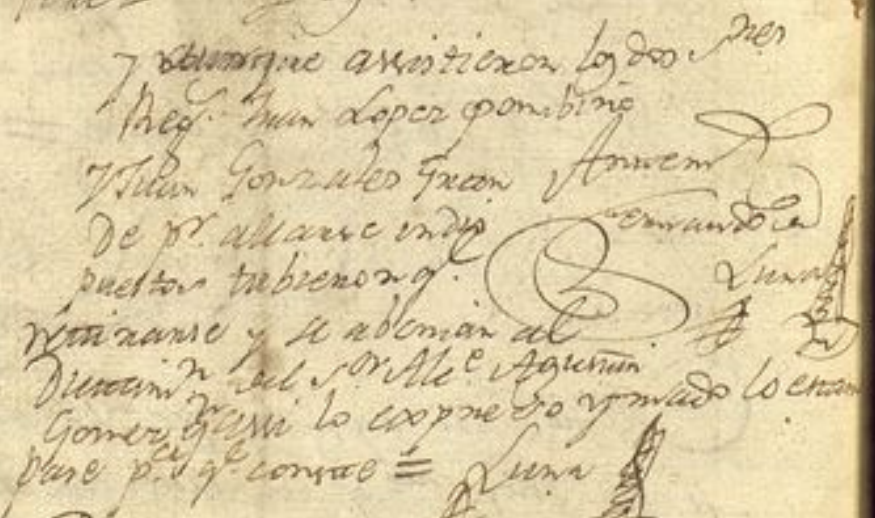 y aunque assistieron los dos s.res
Reg.s Juan Lopez Pombino
y Juan Gonzales Gran
De pr. allarse indis
puestos tubieron q.e
retirarse y se abenian al
Dictam.n del s.or Alc.e Agustin
Gomez, y assi lo expreso
pase p.a q.e conste =
Antem
Fernando
Luna
Luna